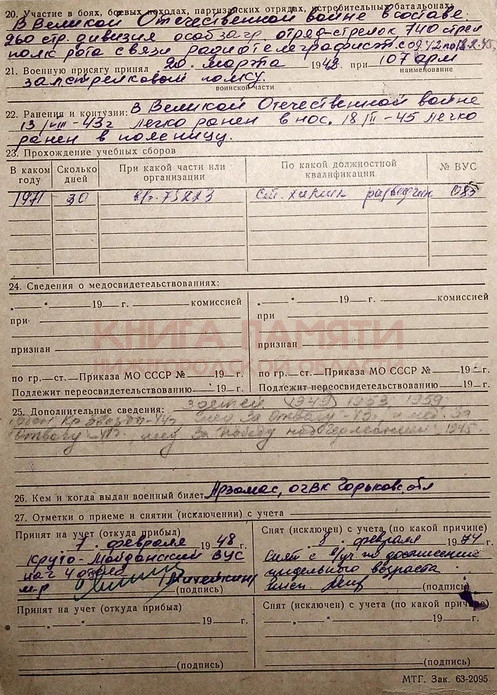 20. Участие в боях, боевых походах, партизанских отрядах, истребительных батальонах
В Великой Отечественной войне в составе:
260 стр. дивизия особ загр. отряд-стрелок 740 стрел
полк рота связи радиотелеграфист. с
21. Военную присягу принял 20. марта 1943 при 107 арм
наименование
зап стрелковом полку.
воинской части
22. Ранения и контузии: В Великой Отечественной войне
13/VIII-43г легко ранен в нос. 18/II-45 легко
ранен в поясницу.
23. Прохождение учебных сборов
В каком году
Сколько дней
При какой части или организации
По какой должностной квалификации
№ ВУС
1971 30 в/ч-75223 ст. химик разведчик
24. Сведения о медосвидетельствованиях:
„ “ 19 г. комиссией
„ “ 19 г. комиссией
при
при
КНИГА ПАМЯТИ
признан
признан
по гр. ст. Приказа МО СССР № 19 г.
по гр. ст. Приказа МО СССР № 19 г.
Подлежит переосвидетельствованию 19 г.
Подлежит переосвидетельствованию 19 г.
25. Дополнительные сведения: 3 детей 1949, 1953, 1959
орден Кр Звезды За отвагу и мед. За
отвагу мед За победу над Германией 1945.
26. Кем и когда выдан военный билет Арзамас, ОГВК Горьков. обл
27. Отметки о приеме и снятии (исключении) с учета
Принят на учет (откуда прибыл)
7. февраля 1948 г.
Круто-Майданский ВУС
нач 4 отдел
м-р
(подпись)
Снят (исключен) с учета (по какой причине)
8. февраля 1974
Снят с в/уч. по достижении
предельного возраста
(подпись)
Принят на учет (откуда прибыл)
19 г.
(подпись)
Снят (исключен) с учета (по какой причине)
19 г.
(подпись)
МТГ. Зак. 63-2095